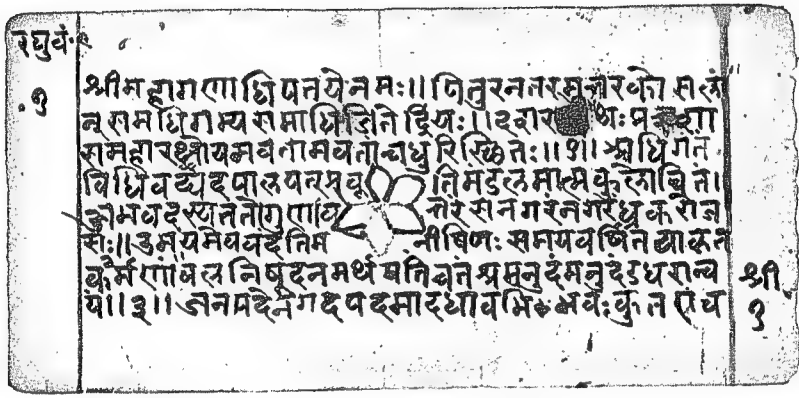 रघुवं॰ ९
१
श्रीमहागणाधिपतयेनमः॥ पितुरनंतरमुत्तरकोसलां
न्समधिगम्यसमाधिजितेंद्रियः॥ दशर थः प्रशशा
समहारथोयमवतामवतांचधुरिस्थितः॥१॥ अधिगतं
विधिवद्यदपालयत्प्रकृ तिमंडलमात्मकुलोचितं।
अभवदस्यततोगुणव त्तरंसनगरंनगरंध्रकरौज
सः॥ उभयमेववदंतिम नीषिणः समयवर्षितयाकृत
कर्मणां बलनिषूदनमर्थपतिंचतंश्रमनुदंमनुदंडधरान्व
यं॥३॥ जनपदेनगदःपदमादधावभिभवःकुतएव
श्री
१